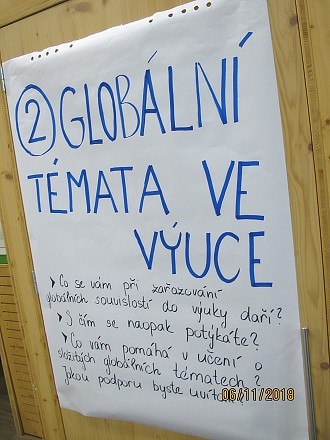 ② GLOBÁLNÍ
TÉMATA VE
VÝUCE
➤ Co se vám při zařazování
globálních souvislostí do výuky daří?
➤ S čím se naopak potýkáte?
➤ Co vám pomáhá v učení o
složitých globálních tématech?
Jakou podporu byste uvítali?
06/11/2018